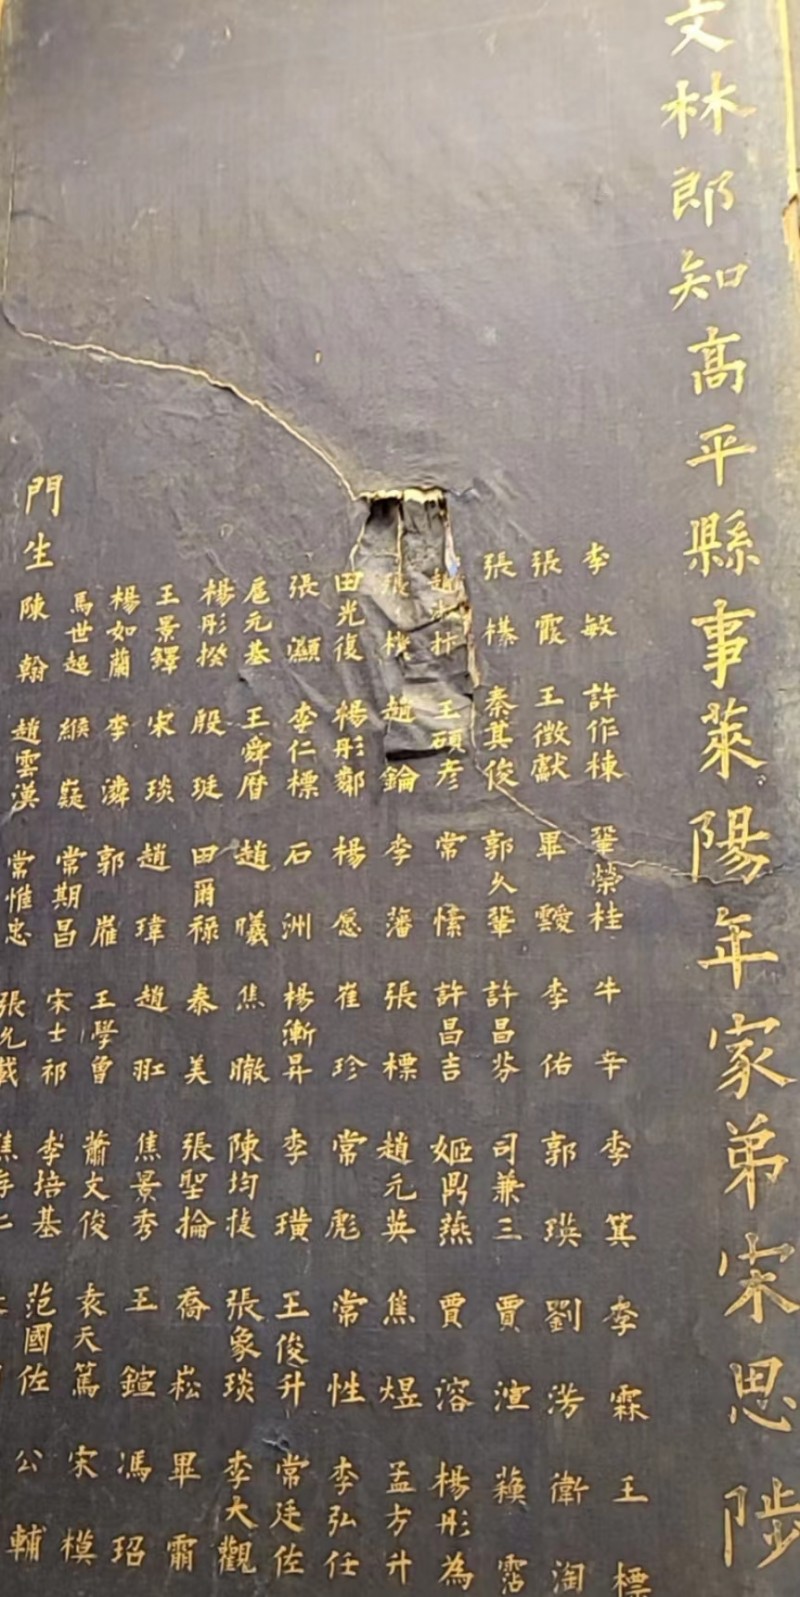 文林郎知高平縣事萊陽年家弟宋思陟
李敏 許作棟 鞏榮桂 牛辛 李箕 李霖 王標
張霞 王徵獻 畢靉 李佑 郭瑛 劉涝 衛淘
張榛 秦其俊 郭久鞏 許昌芬 司兼三 賈渲 蘓霑
王碩彥 常愫 許昌吉 姬鼎燕 賈溶 楊彤為
張機 趙鑰 李藩 張標 趙元英 焦煜 孟方升
田光復 楊彤鄰 楊愿 崔珍 常彪 常性 李弘任
張灝 李仁標 石洲 楊漸昇 李璜 王俊升 常廷佐
扈元基 王舜曆 趙曦 焦瞮 陳均㨗 張象琰 李大觀
楊彤揆 殷珽 田爾祿 秦美 張聖掄 喬崧 畢霌
王景鐸 宋琰 趙瑋 趙珁 焦景秀 王鍹 馮玿
楊如蘭 李濂 郭嶊 王學曾 蕭文俊 袁天篤 宋模
馬世超 緱嶷 常期昌 宋士祁 李培基 范國佐 公輔
門生 陳翰 趙雲漢 常惟忠 張允載